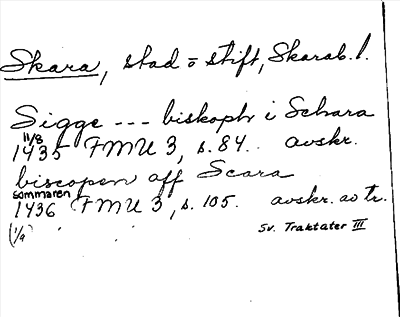 Skara, stad o stift, Skarab. l.
Sigge --- biskoph i Schara
11/8
1435 FMU 3, s. 84. avskr.
biscopen aff Scara
sommaren
1436 FMU 3, s. 105. avskr. av tr.
(1/9)
Sv. Traktater III